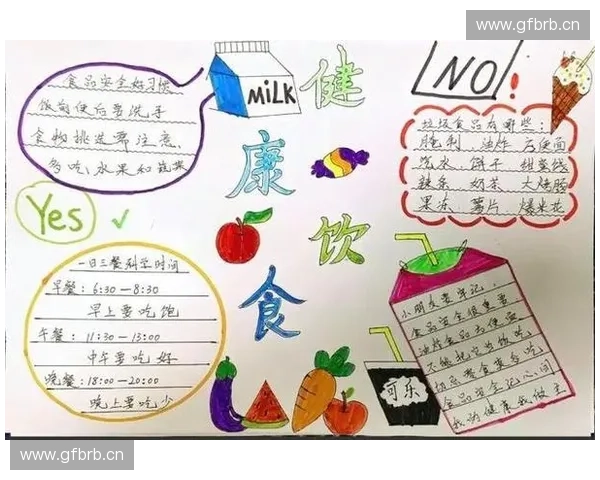 www.gfbrb.cn
食品安全好习惯
饭前便后要洗手
食物挑选要注意
多吃水果和蔬菜
MiLK
健
康
饮
食
NO!
垃圾食品有哪些：
腌制 油炸 方便面
汽水 饼干 甜蜜饯
辣条 奶茶 大烤肠
果冻 薯片 爆米花
Yes ✓
一日三餐科学时间
早餐：6:30—8:30
早上要吃饱
午餐：11:30—13:00
中午要吃好
晚餐：18:00—20:00
晚上要吃少
可乐
小朋友要牢记，
食品安全很重要
油炸食品方便面
不能把它当饭吃
切忌零食变主吃
食品安全记心间
我的健康我做主
www.gfbrb.cn